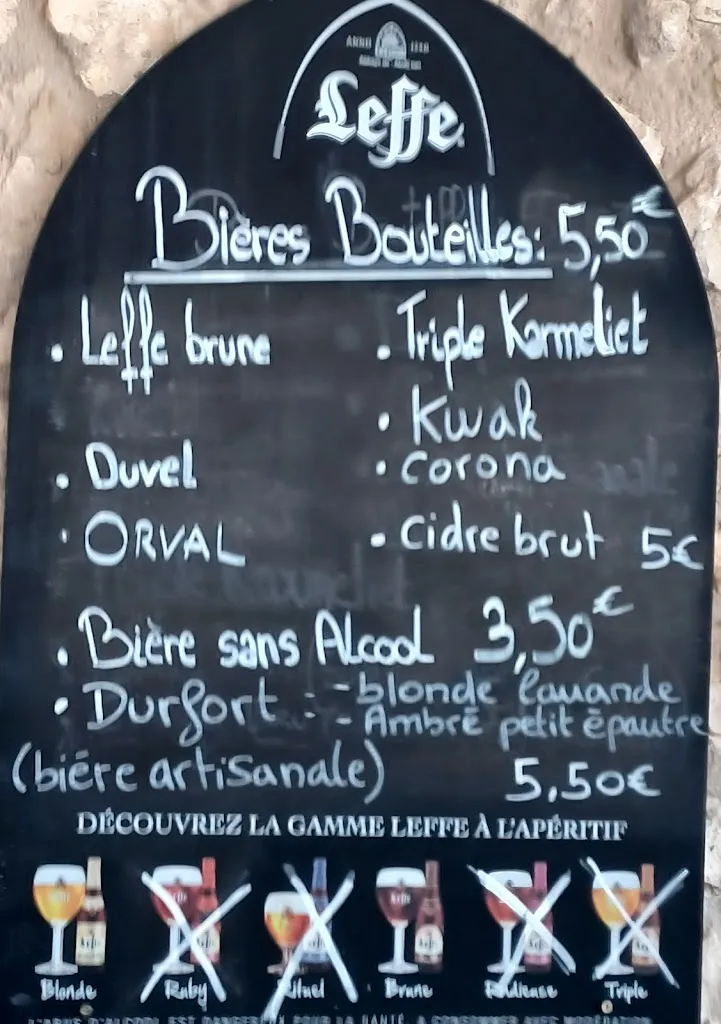 ANNO 1240
Leffe
Bières Bouteilles: 5,50€
• Leffe brune • Triple Karmeliet
• Kwak
• Duvel • corona
• ORVAL • Cidre brut 5€
• Bière sans Alcool 3,50€
• Durfort : - blonde lavande
- Ambré petit épautre
(bière artisanale) 5,50€
DÉCOUVREZ LA GAMME LEFFE À L'APÉRITIF
Blonde Ruby Rituel Brune Radieuse Triple
L'ABUS D'ALCOOL EST DANGEREUX POUR LA SANTÉ, A CONSOMMER AVEC MODÉRATION